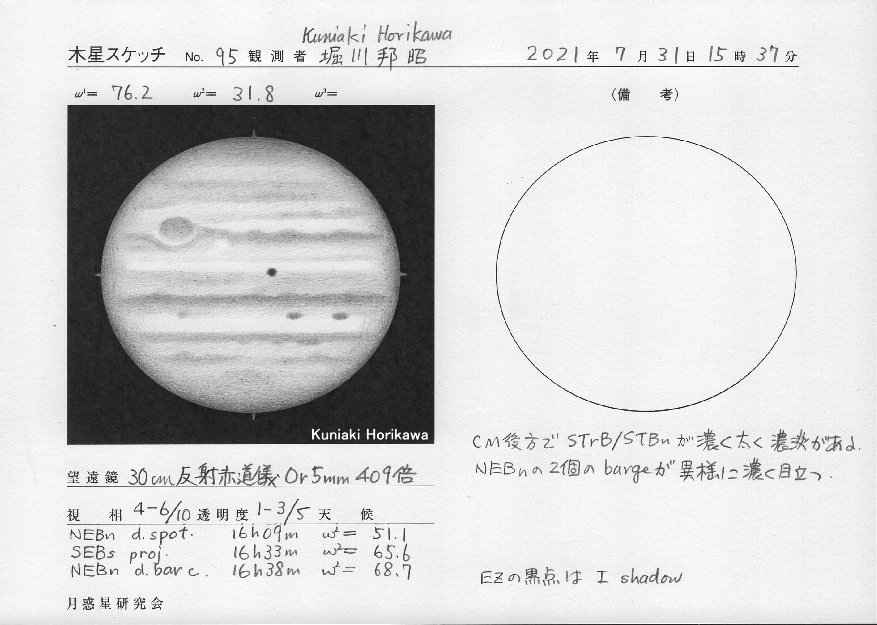 Kuniaki Horikawa
木星スケッチ No. 95 観測者 堀川邦昭 2021年 7月31日15時37分
ω¹= 76.2 ω²= 31.8 ω³=
(備 考)
Kuniaki Horikawa
CM後方でSTrB/STBnが濃く太く濃淡がある.
NEBnの2個のbargeが異様に濃く目立つ.
望遠鏡 30cm反射赤道儀 Or5mm 409倍
視 相 4-6/10 透明度 1-3/5 天 候
NEBn d.spot. 16h09m ω²= 51.1
SEBs proj. 16h33m ω²= 65.6
NEBn d.bar c. 16h38m ω²= 68.7
EZの黒点は I shadow
月惑星研究会